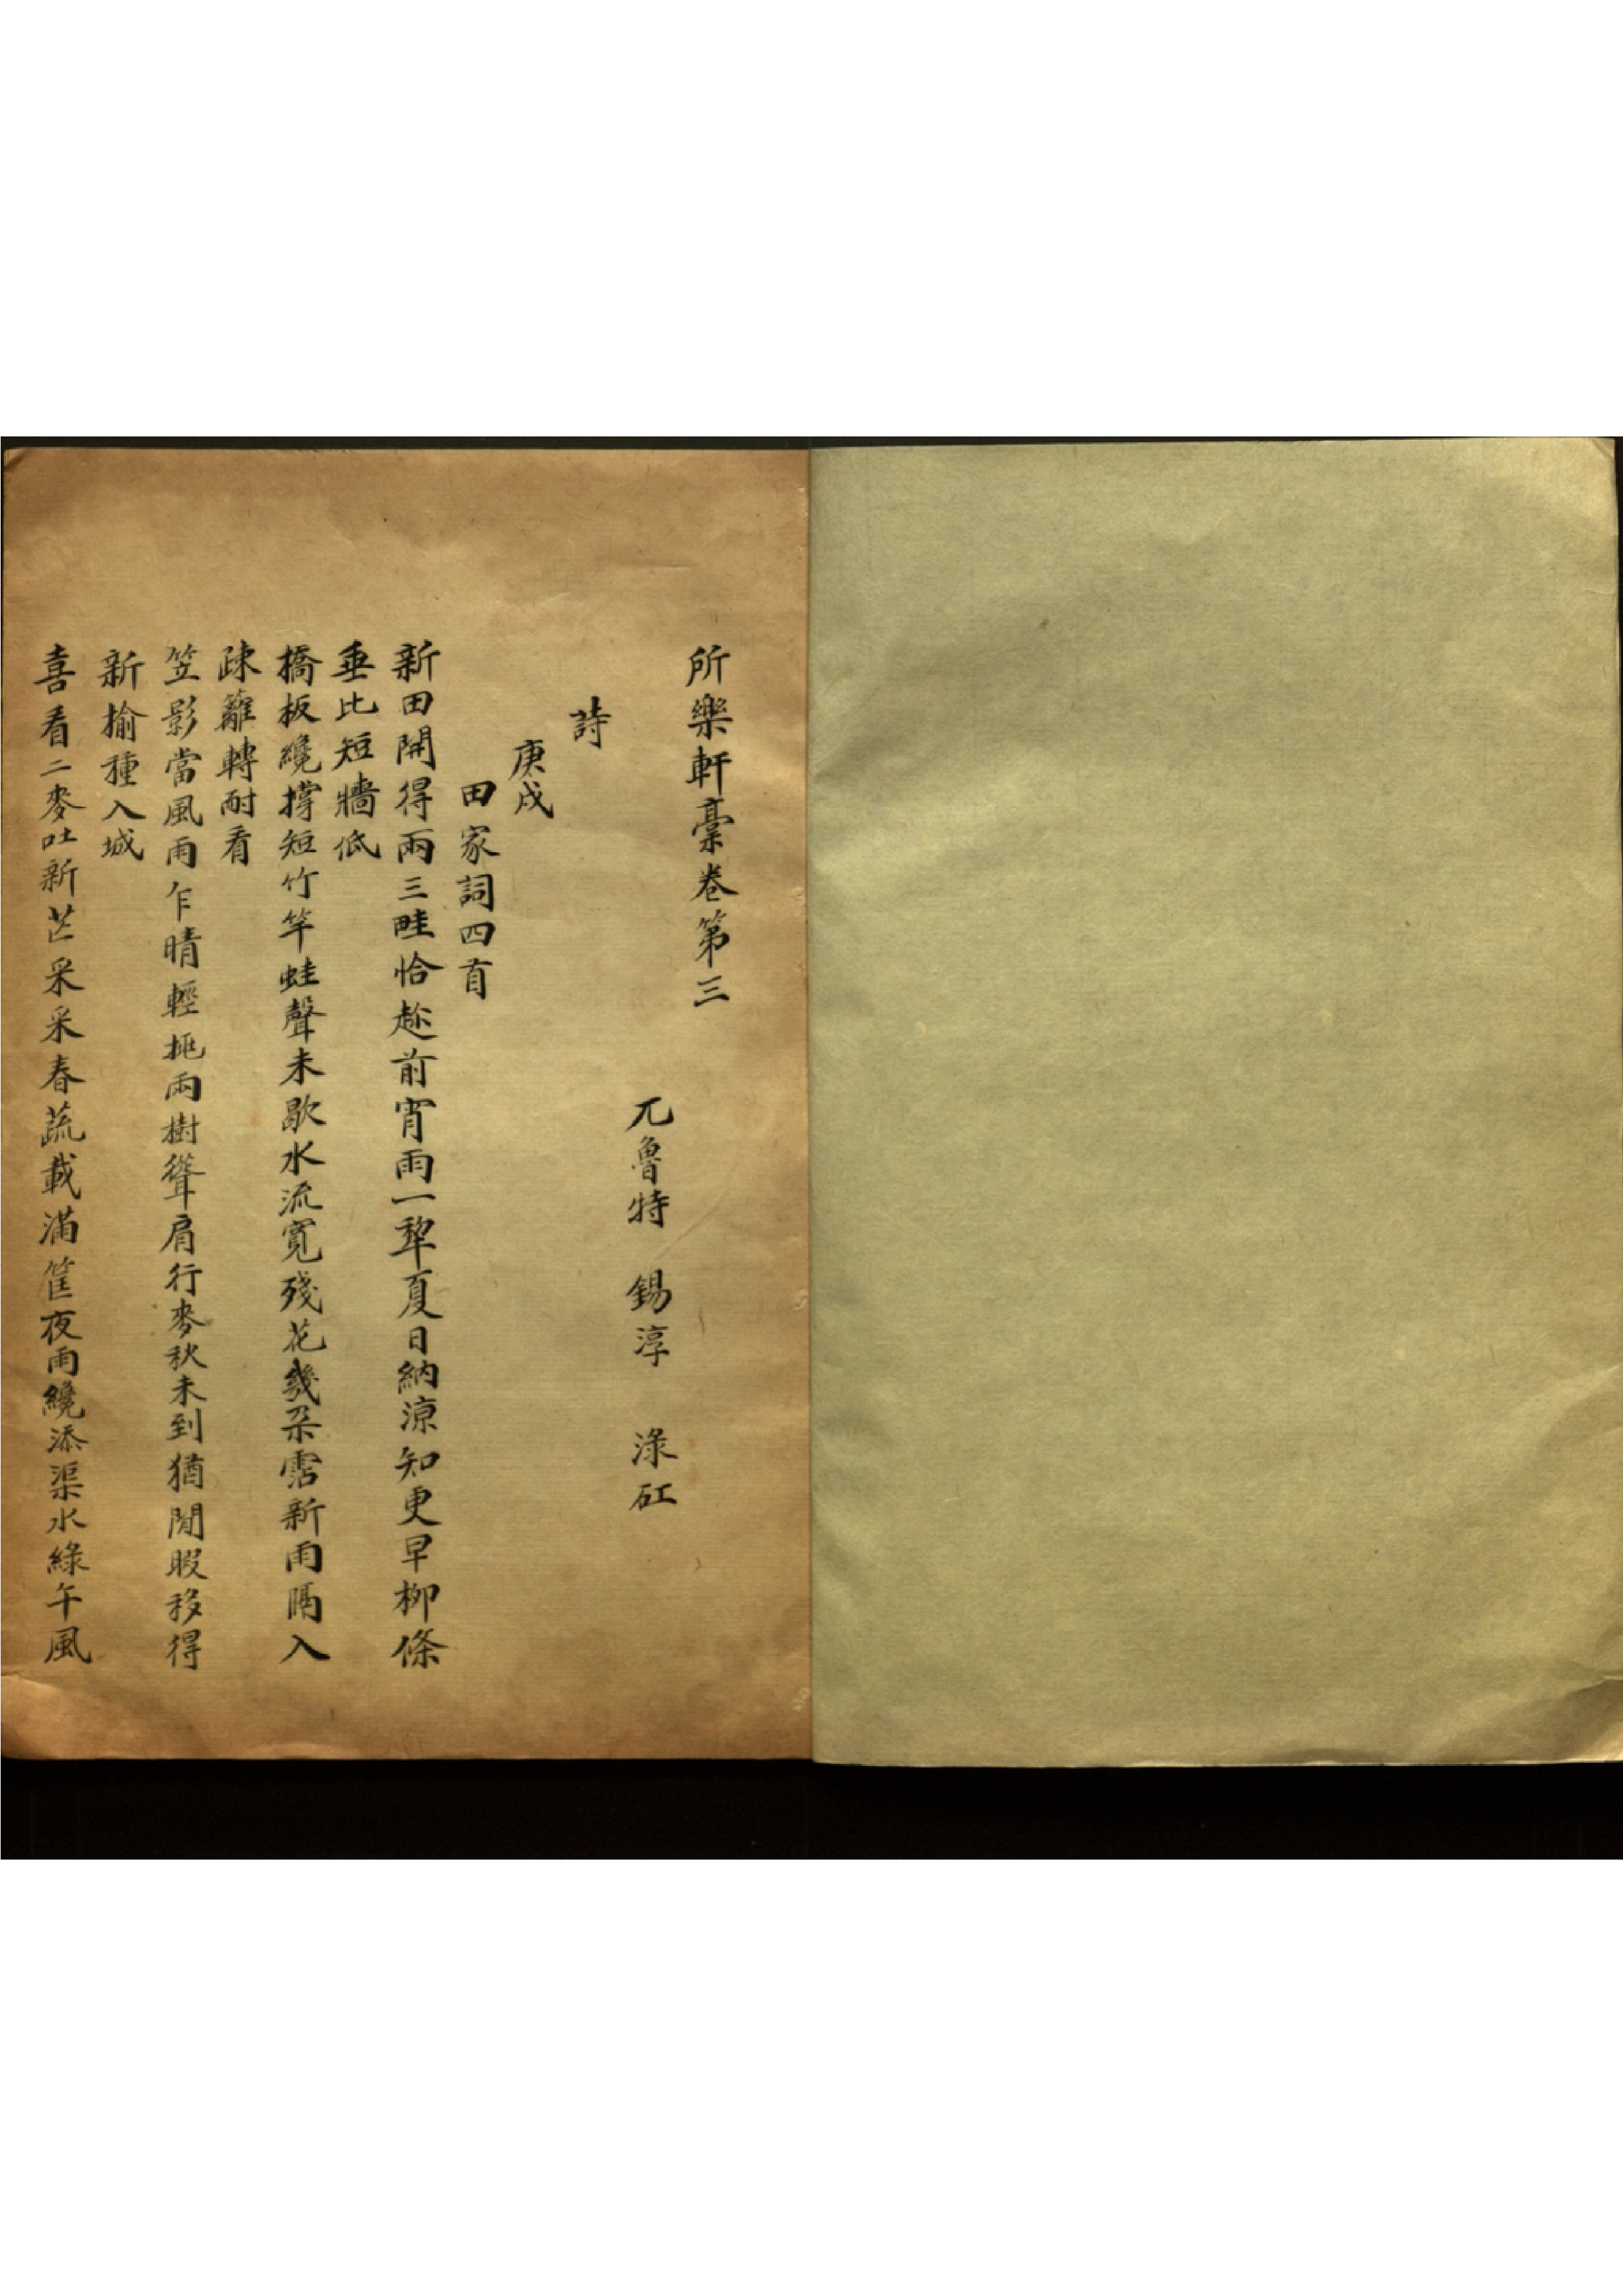 所樂軒藁卷第三
兀魯特　錫淳　淥矼
詩
庚戌
田家詞四首
新田開得兩三畦恰趁前宵雨一犂夏日納涼知更早柳條
垂比短牆低
橋板纔撐短竹竿蛙聲未歇水流寬殘花幾朶霑新雨隔入
疎籬轉耐看
笠影當風雨乍晴輕挑兩樹聳肩行麥秋未到猶閒暇移得
新榆種入城
喜看二麥吐新芒采采春蔬載滿筐夜雨纔添渠水綠午風